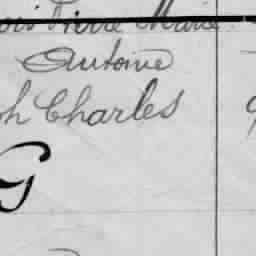 Pierre Marie
Antoine
ph Charles
G